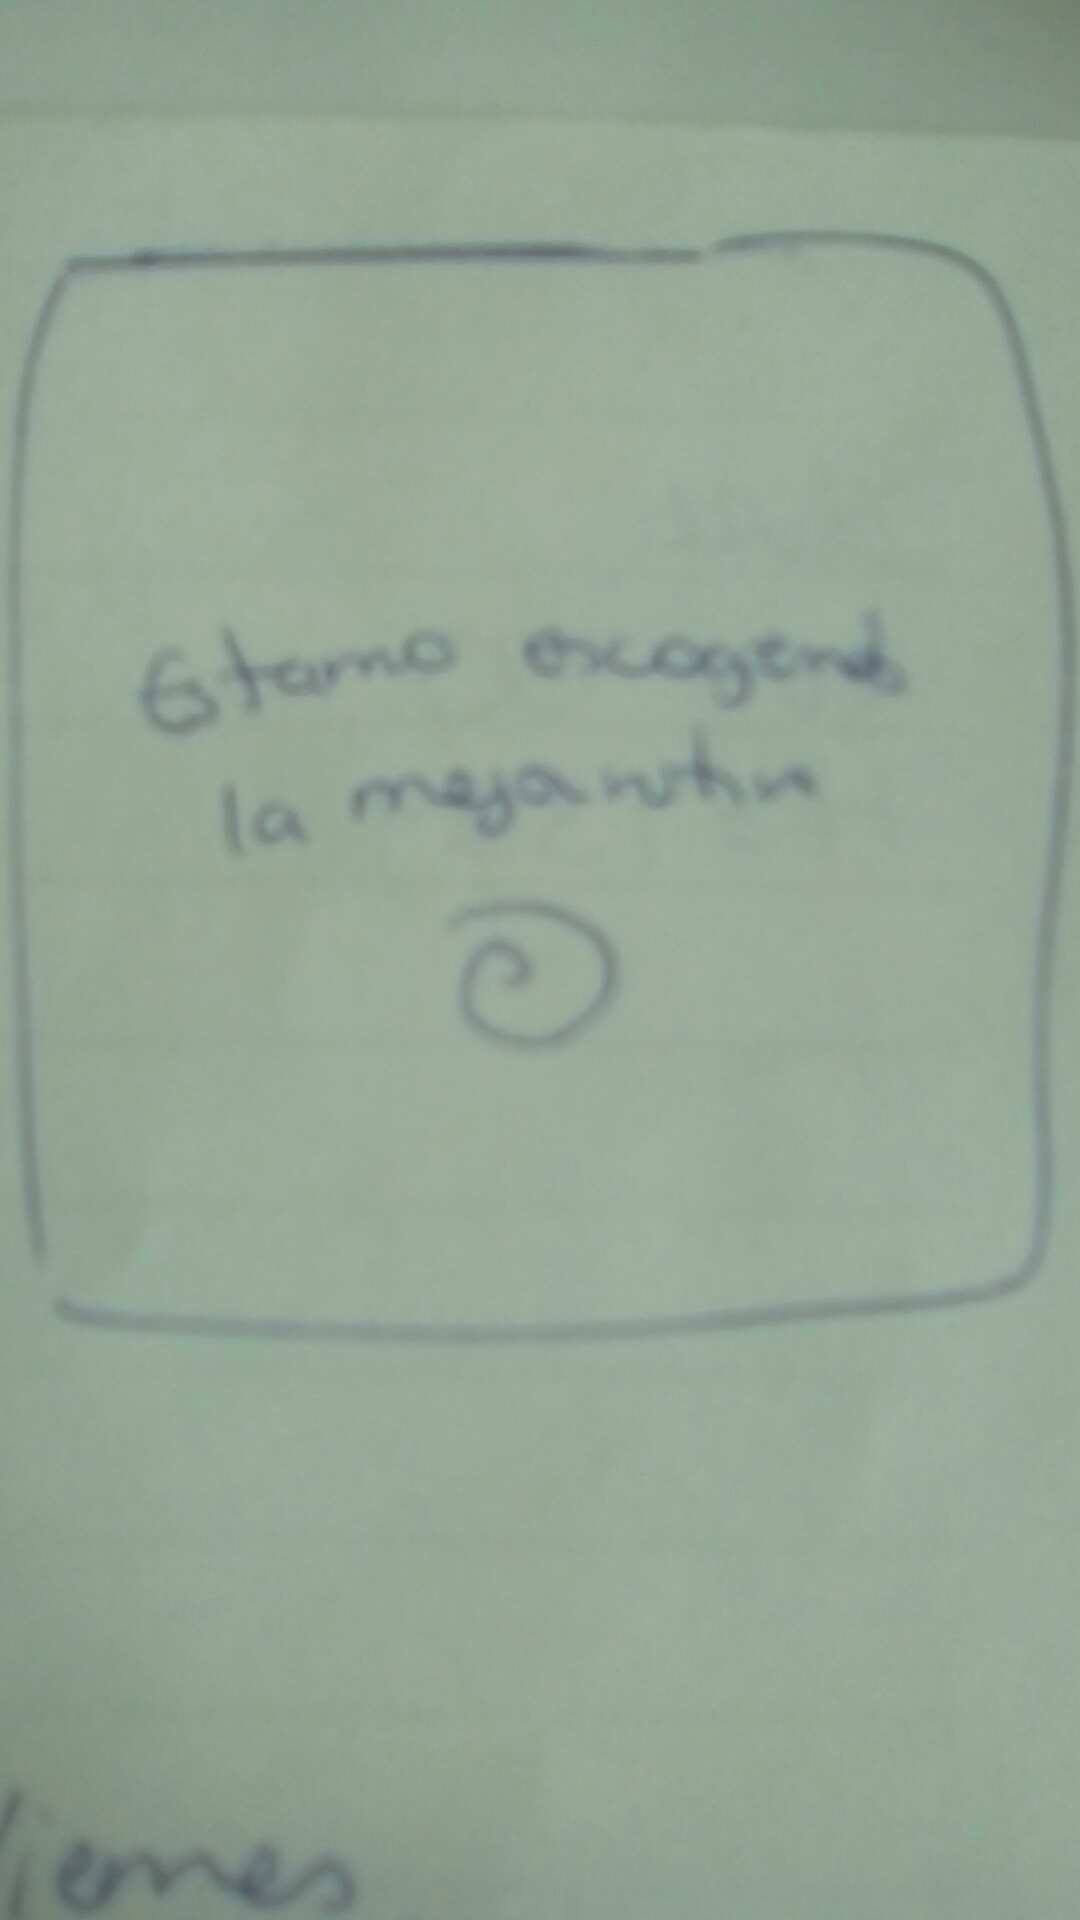 Estamo escogendo
la mejor
iernes